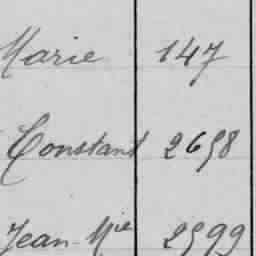 Marie 147
Constant 2658
Jean Mie 2599